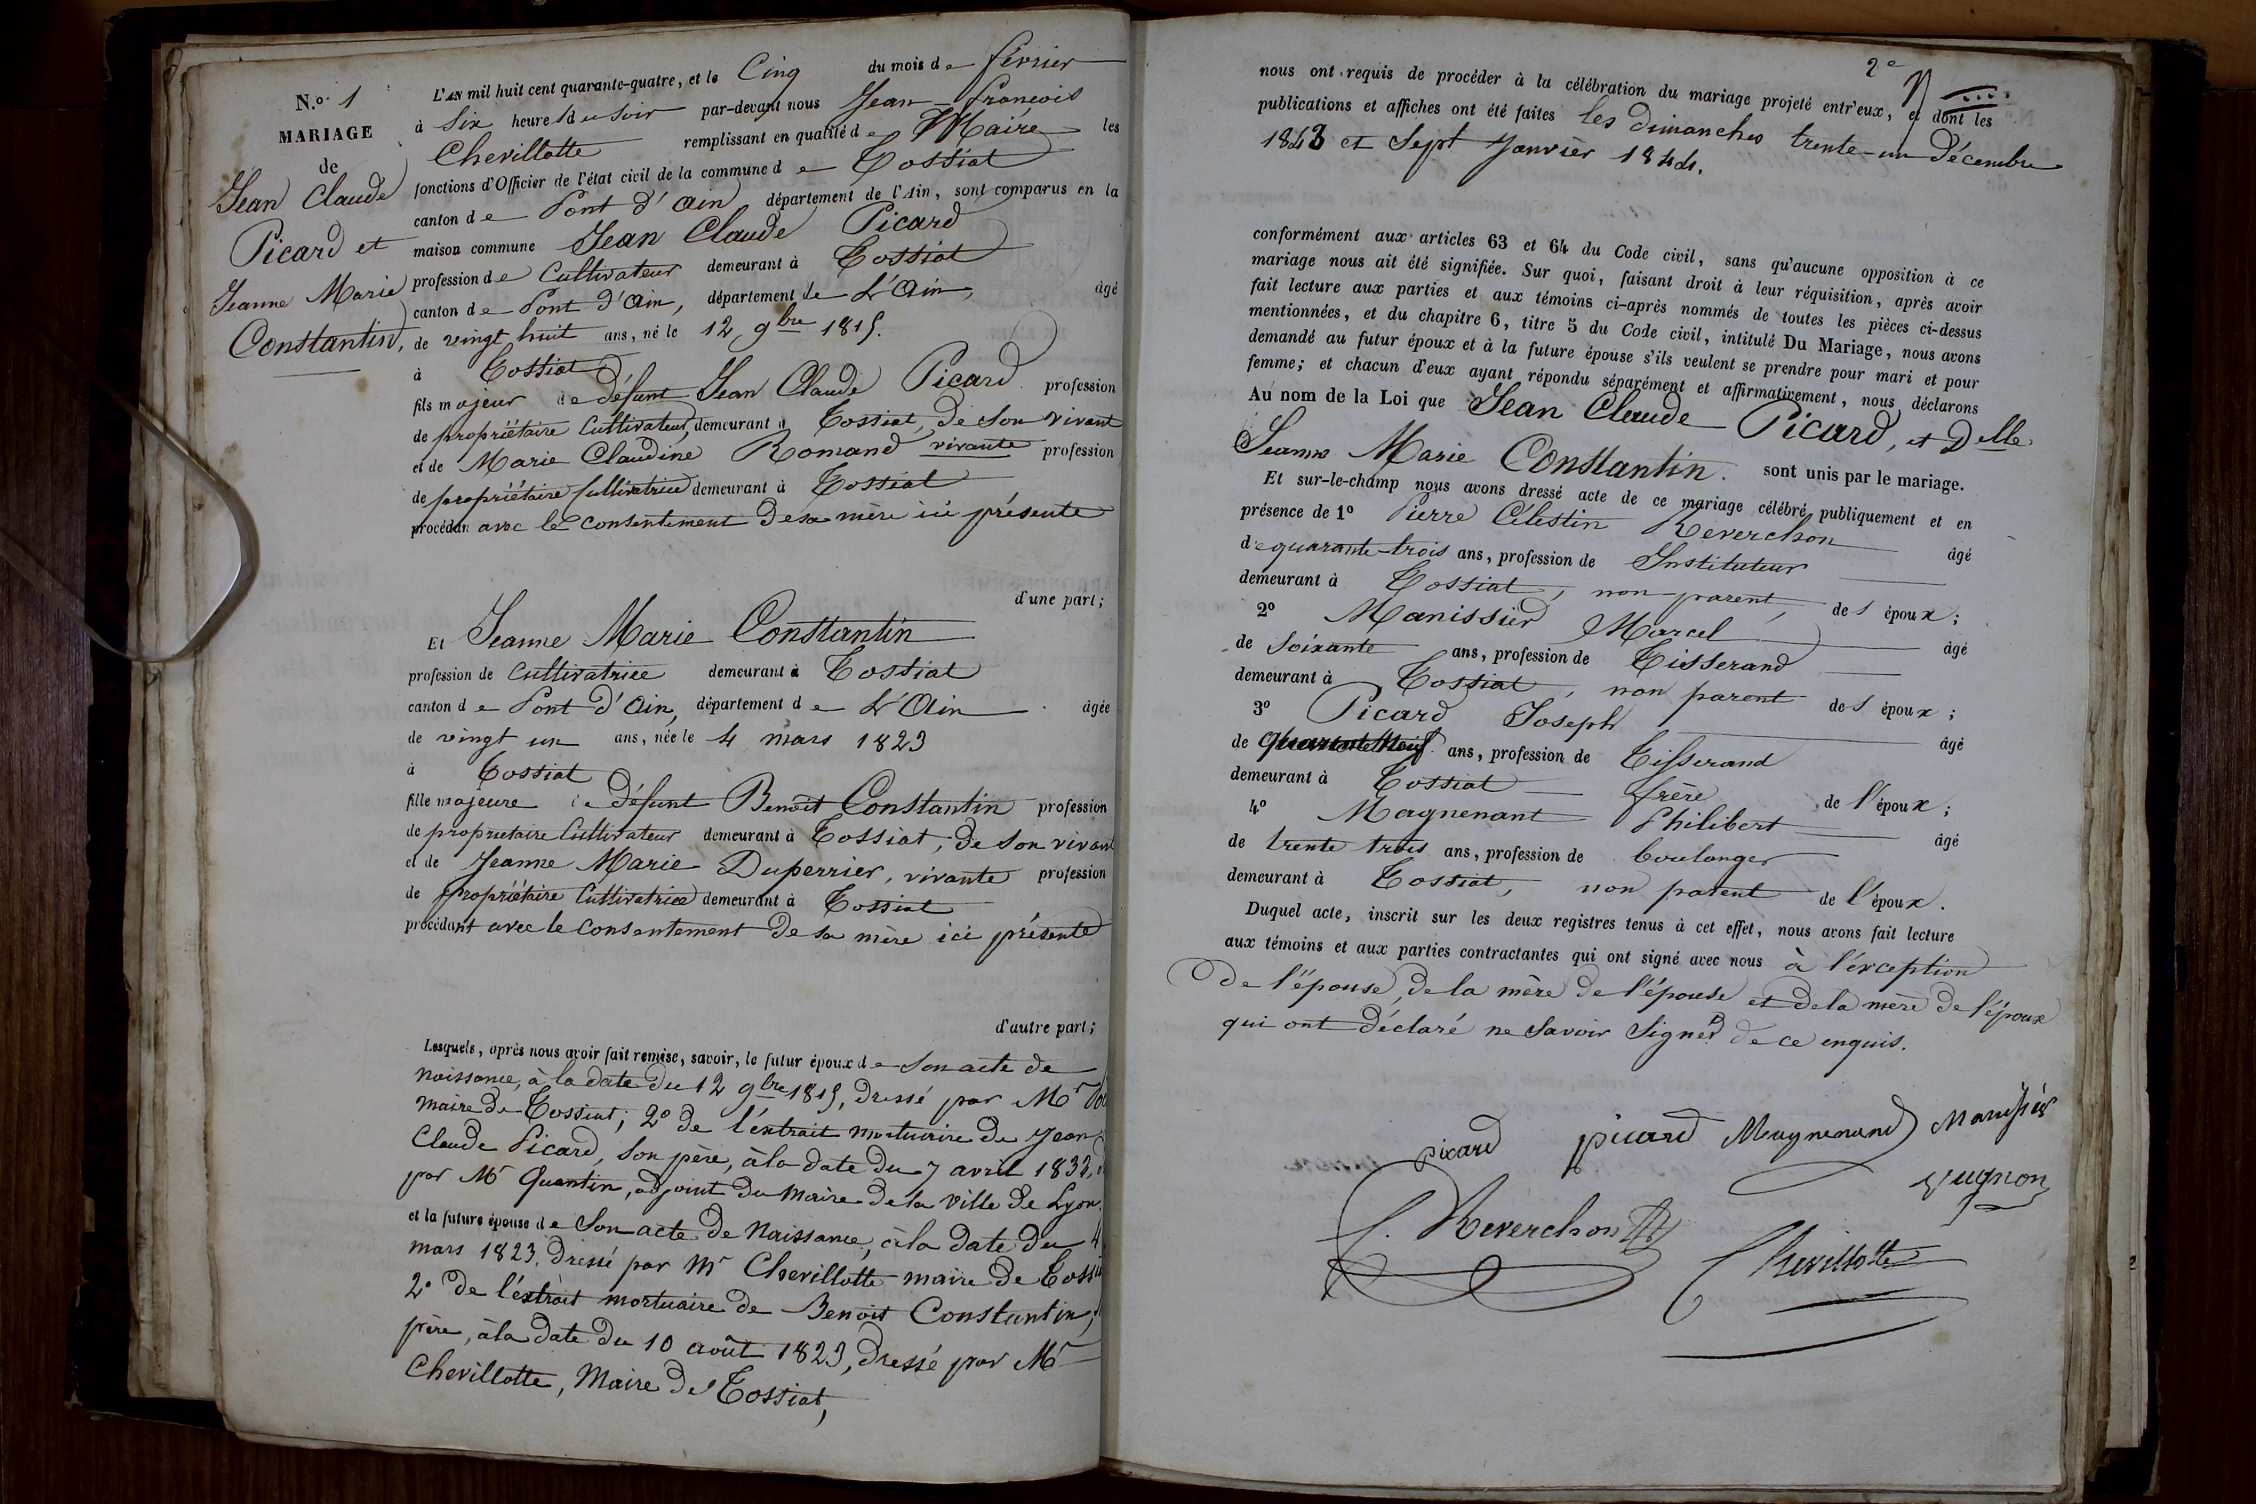 N.º 1
MARIAGE
de
Jean Claude
Picard et
Jeanne Marie
Constantin,
L'AN mil huit cent quarante-quatre, et le Cinq du mois de février
à Six heures du soir par-devant nous Jean-François
Chevillotte remplissant en qualité de Maire les
fonctions d'Officier de l'état civil de la commune de Tossiat
canton de Pont d'ain département de l'Ain, sont comparus en la
maison commune Jean Claude Picard
profession de Cultivateur demeurant à Tossiat
canton de Pont d'Ain, département de L'Ain, âgé
de vingt huit ans, né le 12 9bre 1815.
à Tossiat
fils majeur de défunt Jean Claude Picard profession
de propriétaire Cultivateur, demeurant à Tossiat, de son vivant
et de Marie Claudine Romand vivante profession
de propriétaire Cultivatrice demeurant à Tossiat
procédan avec le consentement de sa mère ici présente
d'une part;
Et Jeanne Marie Constantin
profession de cultivatrice demeurant à Tossiat
canton de Pont d'Ain, département de L'Ain âgée
de vingt un ans, née le 4 mars 1823
à Tossiat
fille majeure de défunt Benoit Constantin profession
de propriétaire Cultivateur demeurant à Tossiat, de son vivant
et de Jeanne Marie Duperrier, vivante profession
de propriétaire Cultivatrice demeurant à Tossiat
procédant avec le consentement de sa mère ici présente
d'autre part;
Lesquels, après nous avoir fait remise, savoir, le futur époux de son acte de
naissance, à la date du 12 9bre 1815, dressé par Mr
maire de Tossiat; 2º de l'extrait mortuaire de Jean
Claude Picard, son père, à la date du 7 avril
par Mr Quantin, adjoint du maire de la ville de Lyon.
et la future épouse de son acte de naissance, à la date du 4
mars 1823, dressé par Mr Chevillotte maire de Tossi
2º de l'extrait mortuaire de Benoit Constantin,
père, à la date du 10 août 1823, dressé par Mr
Chevillotte, Maire de Tossiat,
2e
nous ont requis de procéder à la célébration du mariage projeté entr'eux, et dont les
publications et affiches ont été faites les dimanches trente-un Décembre
1843 et Sept Janvier 1844.
conformément aux articles 63 et 64 du Code civil, sans qu'aucune opposition à ce
mariage nous ait été signifiée. Sur quoi, faisant droit à leur réquisition, après avoir
fait lecture aux parties et aux témoins ci-après nommés de toutes les pièces ci-dessus
mentionnées, et du chapitre 6, titre 5 du Code civil, intitulé Du Mariage, nous avons
demandé au futur époux et à la future épouse s'ils veulent se prendre pour mari et pour
femme; et chacun d'eux ayant répondu séparément et affirmativement, nous déclarons
Au nom de la Loi que Jean Claude Picard, et Delle
Jeanne Marie Constantin. sont unis par le mariage.
Et sur-le-champ nous avons dressé acte de ce mariage célébré publiquement et en
présence de 1º Pierre Célestin Reverchon âgé
de quarante-trois ans, profession de Instituteur
demeurant à Tossiat, non parent, des époux;
2º Manissier Marcel âgé
de soixante ans, profession de Tisserand
demeurant à Tossiat, non parent des époux;
3º Picard Joseph âgé
de quarante Neuf ans, profession de Tisserand
demeurant à Tossiat frère de l'époux;
4º Magnenant Philibert âgé
de trente trois ans, profession de boulanger
demeurant à Tossiat, non parent de l'époux.
Duquel acte, inscrit sur les deux registres tenus à cet effet, nous avons fait lecture
aux témoins et aux parties contractantes qui ont signé avec nous à l'exception
de l'épouse, de la mère de l'épouse et de la mère de l'époux
qui ont déclaré ne savoir signer de ce enquis.
picard picard Magnenand Manissier
Vugnon
C. Reverchon Chevillotte